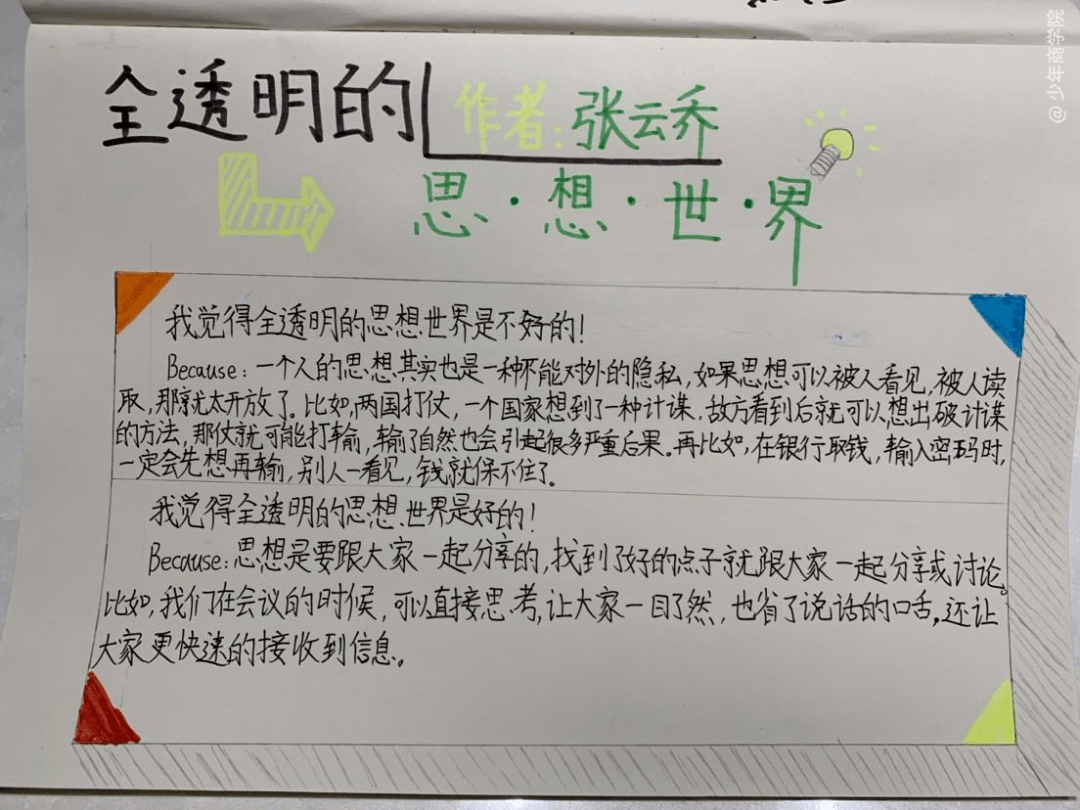 @少年商学院
全透明的
作者:张云乔
思·想·世·界
我觉得全透明的思想世界是不好的!
Because:一个人的思想其实也是一种不能对外的隐私,如果思想可以被人看见,被人读
取,那就太开放了。比如,两国打仗,一个国家想到了一种计谋,敌方看到后就可以想出破计谋
的方法,那仗就可能打输,输了自然也会引起很多严重后果。再比如,在银行取钱,输入密码时,
一定会先想再输,别人一看见,钱就保不住了。
我觉得全透明的思想世界是好的!
Because:思想是要跟大家一起分享的,找到了好的点子就跟大家一起分享或讨论。
比如,我们在会议的时候,可以直接思考,让大家一目了然,也省了说话的口舌。还让
大家更快速的接收到信息。